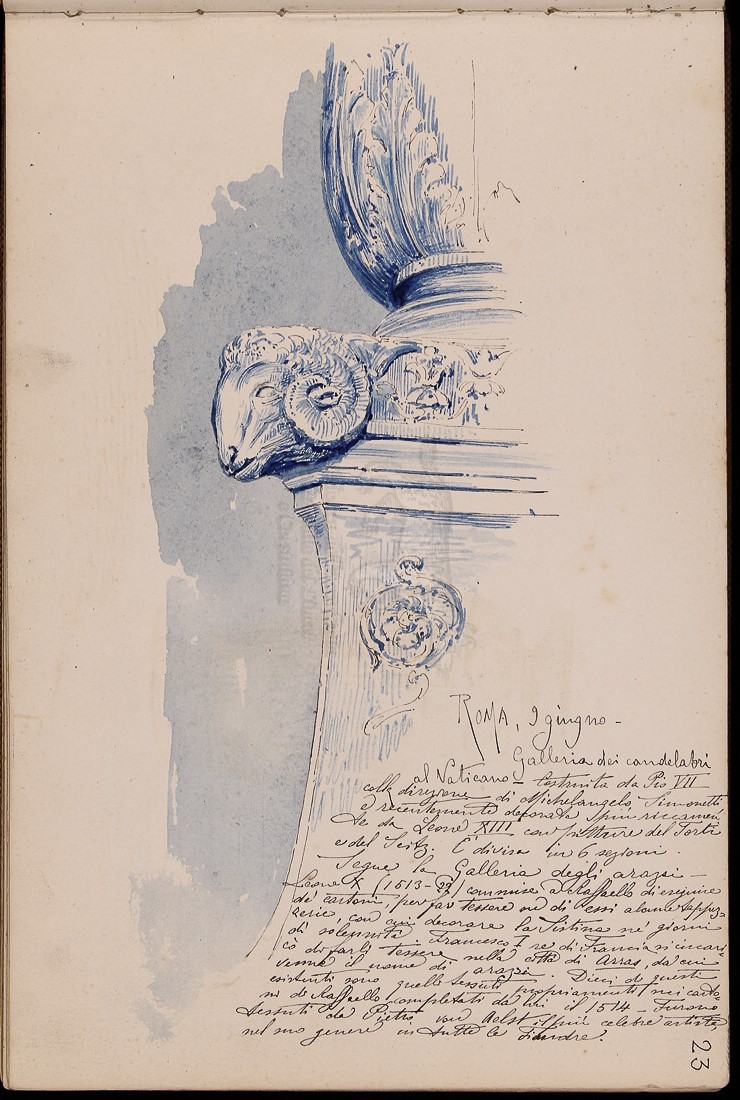 ROMA, 9 giugno -
Galleria dei candelabri
al Vaticano - Costruita da Pio VII
colla direzione di Michelangelo Simonetti
e recentemente decorata più riccamen
te da Leone XIII con pitture del Torti
e del Seitz. È divisa in 6 sezioni.
Segue la Galleria degli arazzi -
Leone X (1513-22) commise a Raffaello di eseguire
de' cartoni, per far tessere su di essi alcune tappez-
zerie, con cui decorare la Sistina ne' giorni
di solennità. Francesco I re di Francia si incari-
cò di farli tessere nella città di Arras, da cui
venne il nome di arazzi. Dieci di questi
esistenti sono quelli tessuti propriamente sui carto-
ni di Raffaello completati da lui il 1514 - Furono
tessuti da Pietro van Aelst il più celebre artista
nel suo genere in tutte le Fiandre.
23